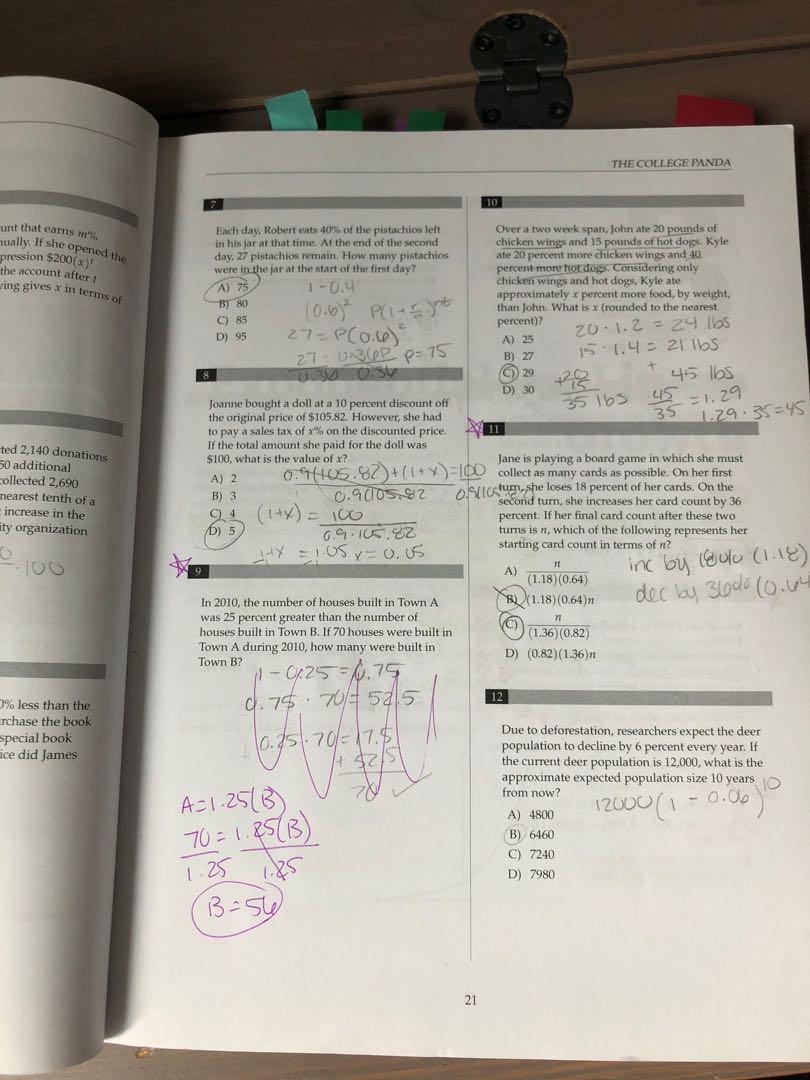 unt that earns m%
nually. If she opened the
pression $200(x)^t
the account after t
ving gives x in terms of
ted 2,140 donations
50 additional
collected 2,690
nearest tenth of a
increase in the
ity organization
0
.100
0% less than the
rchase the book
special book
ice did James
THE COLLEGE PANDA
7
Each day, Robert eats 40% of the pistachios left
in his jar at that time. At the end of the second
day, 27 pistachios remain. How many pistachios
were in the jar at the start of the first day?
A) 75
B) 80
C) 85
D) 95
1-0.4
(0.6)²
27=P(0.6)²
27 = 0.36P P=75
0.36 0.36
8
Joanne bought a doll at a 10 percent discount off
the original price of $105.82. However, she had
to pay a sales tax of x% on the discounted price.
If the total amount she paid for the doll was
$100, what is the value of x?
A) 2
B) 3
C) 4
D) 5
0.9(105.82)+(1+x)=100
0.9(105.82 0.9(105.82)
(1+x) = 100
0.9·105.82
1+x = 1.05 x = 0.05
9
In 2010, the number of houses built in Town A
was 25 percent greater than the number of
houses built in Town B. If 70 houses were built in
Town A during 2010, how many were built in
Town B?
1-0.25=0.75
0.75 · 70 = 52.5
0.25 · 70 = 17.5
+ 52.5
70 ✓
A=1.25(B)
70 = 1.25(B)
1.25 1.25
B=56
10
Over a two week span, John ate 20 pounds of
chicken wings and 15 pounds of hot dogs. Kyle
ate 20 percent more chicken wings and 40
percent more hot dogs. Considering only
chicken wings and hot dogs, Kyle ate
approximately x percent more food, by weight,
than John. What is x (rounded to the nearest
percent)?
A) 25
B) 27
C) 29
D) 30
20 · 1.2 = 24 lbs
15 · 1.4 = 21 lbs
+
45 lbs
+20
15
35 lbs
45
35 = 1.29
1.29 · 35=45
11
Jane is playing a board game in which she must
collect as many cards as possible. On her first
turn, she loses 18 percent of her cards. On the
second turn, she increases her card count by 36
percent. If her final card count after these two
turns is n, which of the following represents her
starting card count in terms of n?
A) n
(1.18)(0.64)
B) (1.18)(0.64)n
C) n
(1.36)(0.82)
D) (0.82)(1.36)n
inc by 18% (1.18)
dec by 36% (0.64
12
Due to deforestation, researchers expect the deer
population to decline by 6 percent every year. If
the current deer population is 12,000, what is the
approximate expected population size 10 years
from now?
A) 4800
B) 6460
C) 7240
D) 7980
12000(1-0.06)^10
21